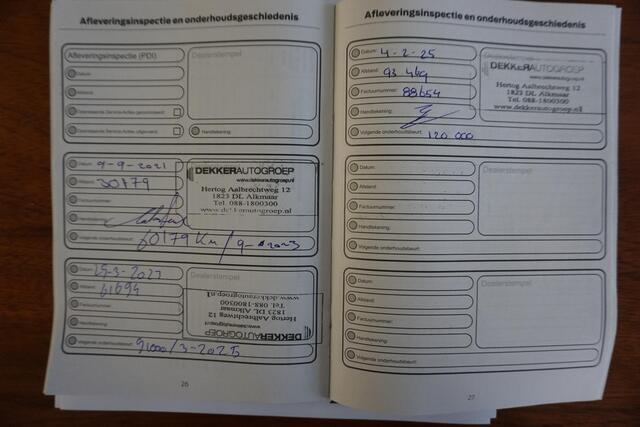 Afleveringsinspectie en onderhoudsgeschiedenis
Afleveringsinspectie (PDI)
Dealerstempel
Datum:
Afstand:
Openstaande Service-Acties gecontroleerd:
Openstaande Service-Acties uitgevoerd:
Handtekening:
Datum: 9-9-2021
Afstand: 30179
Factuurnummer:
Handtekening:
Volgende onderhoudsbeurt: 60179 Km / 9-2023
DEKKERAUTOGROEP
www.dekkerautogroep.nl
Hertog Aalbrechtweg 12
1823 DL Alkmaar
Tel. 088-1800300
www.dekkerautogroep.nl
Datum: 15-3-2023
Afstand: 61694
Factuurnummer:
Handtekening:
Volgende onderhoudsbeurt: 91000 / 3-2025
Dealerstempel
DEKKERAUTOGROEP
www.dekkerautogroep.nl
Hertog Aalbrechtweg 12
1823 DL Alkmaar
Tel. 088-1800300
www.dekkerautogroep.nl
26
Afleveringsinspectie en onderhoudsgeschiedenis
Datum: 4-2-25
Afstand: 93469
Factuurnummer: 88654
Handtekening:
Volgende onderhoudsbeurt: 120 000
DEKKERAUTOGROEP
www.dekkerautogroep.nl
Hertog Aalbrechtweg 12
1823 DL Alkmaar
Tel. 088-1800300
www.dekkerautogroep.nl
Datum:
Afstand:
Factuurnummer:
Handtekening:
Volgende onderhoudsbeurt:
Dealerstempel
Datum:
Afstand:
Factuurnummer:
Handtekening:
Volgende onderhoudsbeurt:
Dealerstempel
27